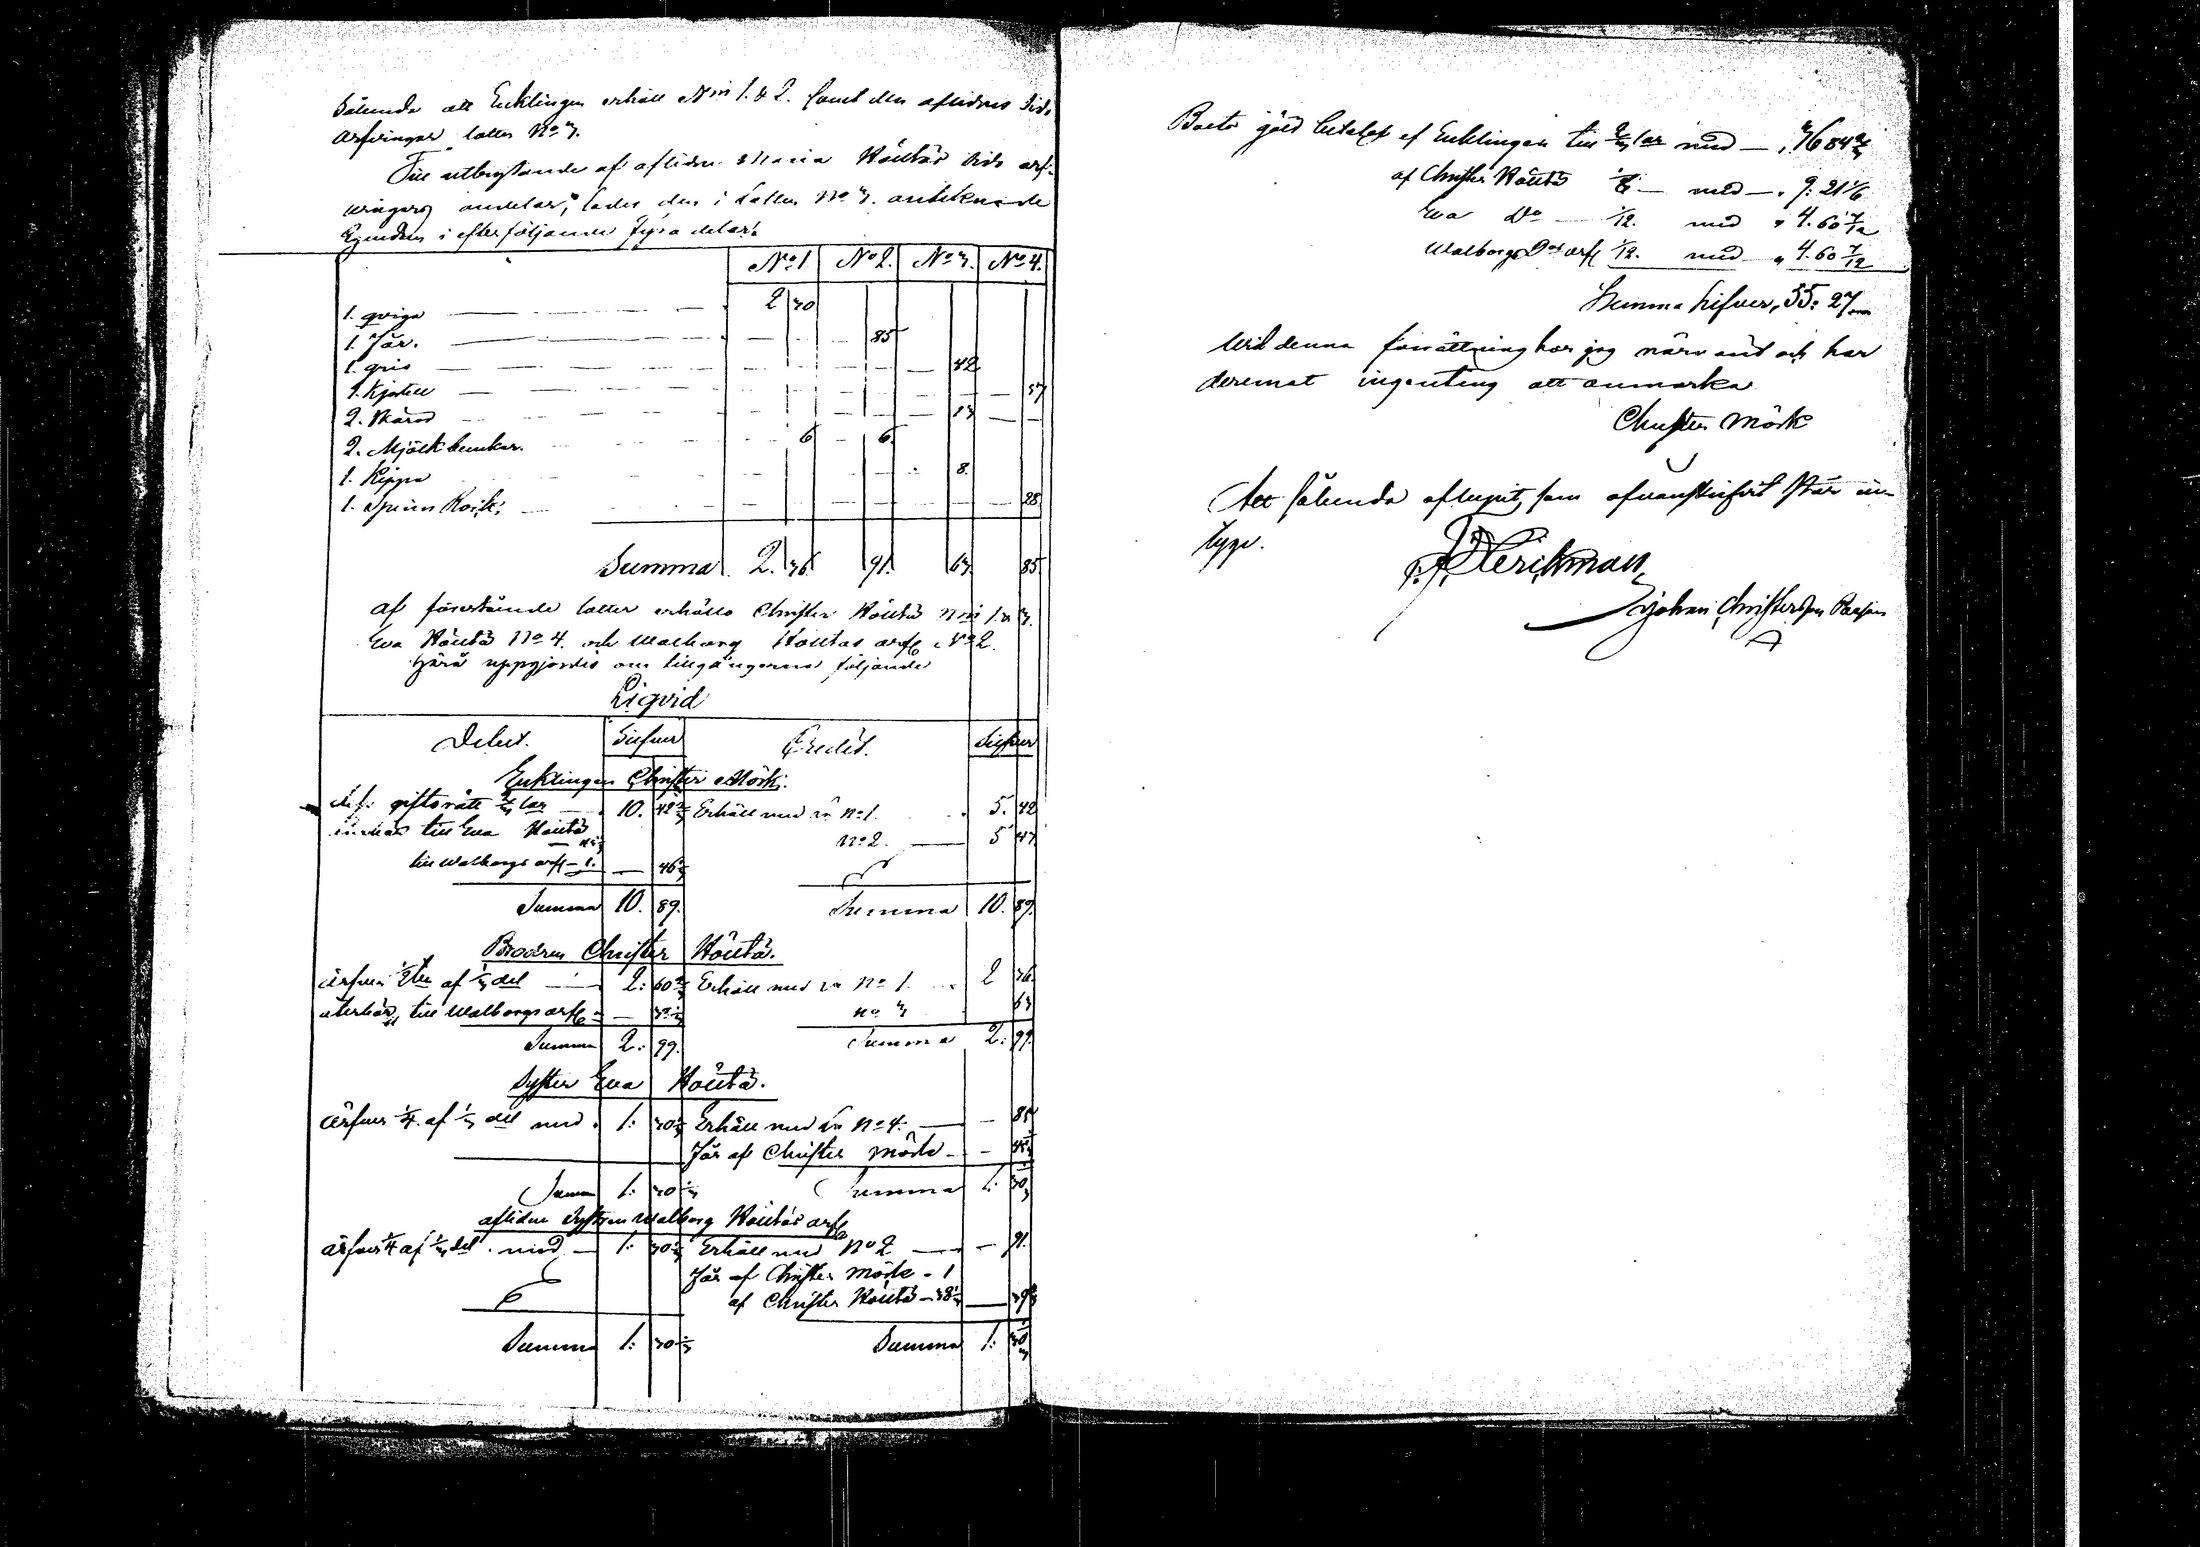 Sålunda att Enklingen erhåll N:ris 1. & 2. samt den aflidnes Sido
arfvingar lotten No 3.
Till utbrytande af aflidne Maria Höutäs Sido arf-
vingars andelar, lades den i Lotten No 3. antecknade
Egendom i efterföljande fyra delar.
No 1. No 2. No 3. No 4.
1. qviga — 2 30
1. Får. — 85
1. gris — 42
1. Kjettel — 57
2. Skäror — 13
2. Mjölkbunkar. 6 6
1. Kippa — 8.
1. Spinn Rock; — 28.
Summa 2. 36 91. 63. 85.
af förestående lotter erhållo Christer Höutä N:ris 1. & 3.
Eva Höutä No 4. och Walborg Höutäs arfv. No 2.
härå uppgjordes om tillgångarna följande
Liqvid
Debet. Silfver Credit. Silfver
Enklingen Christer Mörk.
giftorätt 2/3 lar 10. 42 2/3 Erhåll med No 1. 5. 42
till Eva Höutä No 2. — 5 47
till Walborgs arfv — 1. — 46 1/3
Summa 10. 89. Summa 10. 89.
Brodren Christer Höutä.
ärfver 1/2 ten af 1/3 del — 2: 60 2/3 Erhåll med No 1. 2 36
återbär till Walborgs arfv — 38 1/3 No 3 63
Summa 2: 99. Summa 2: 99.
Syster Eva Höutä.
ärfver 1/4 af 1/3 del med 1: 30 1/3 Erhåll med No 4. — 85
får af Christer Mörk — 45 1/3
Summa 1: 30 1/3 Summa 1: 30 1/3
aflidne Systren Walborg Höutäs arfv
ärfver 1/4 af 1/3 del med — 1: 30 1/3 Erhåll med No 2 — 91.
får af Christer Mörk — 1
af Christer Höutä — 38 1/3 — 39 1/3
Summa 1: 30 1/3 Summa 1: 30 1/3
Boets gäld betalas af Enklingen till 2/3 lar med — „ 36 84 2/3
af Christer Höutä 1/6 — med — „ 9. 21 1/6
Eva Do — 1/12. med „ 4. 60 7/12
Walborgs Do arfv 1/12. med „ 4. 60 7/12
Summa Silfver, 55: 27
Wid denna förrättning har jag närvarit och har
deremot ingenting att anmärka
Christer Mörk
Att sålunda aflupit, som ofvanskrifvit står in-
tyga.
Johan Christersson